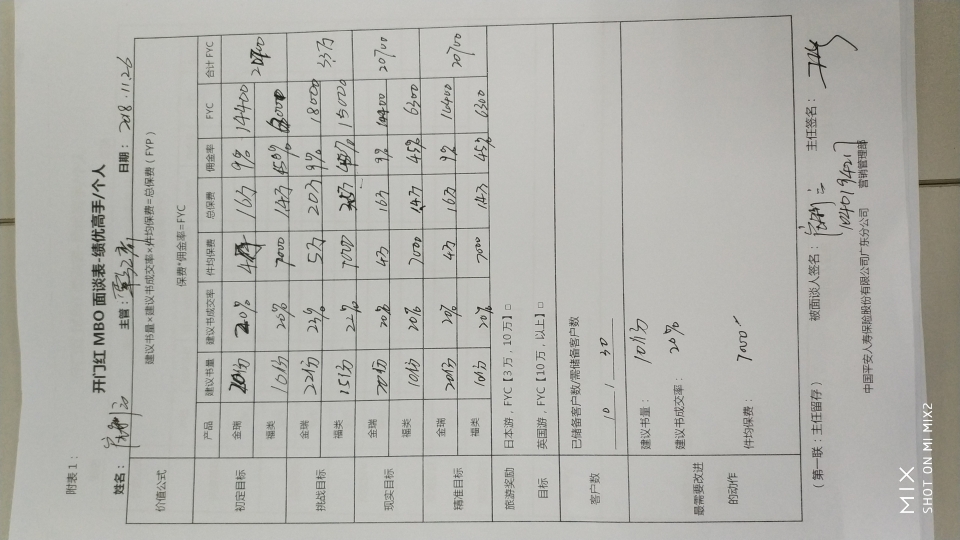 附表 1：
开门红 MBO 面谈表-绩优高手/个人
姓名： 主管： 日期： 2018.11.26
价值公式 建议书量×建议书成交率×件均保费=总保费（FYP）
保费*佣金率=FYC
产品 建议书量 建议书成交率 件均保费 总保费 佣金率 FYC 合计 FYC
初定目标 金瑞 20份 20% 4万 16万 9% 14400
福类 10份 20% 7000 1.4万 45% 20700
挑战目标 金瑞 22份 23% 5万 20万 9% 18000
福类 15份 22% 7000 15000 3.3万
现实目标 金瑞 20份 20% 4万 16万 9% 14400
福类 10份 20% 7000 1.4万 45% 6300 20700
精准目标 金瑞 20份 20% 4万 16万 9% 14400
福类 10份 20% 7000 1.4万 45% 6300 20700
旅游奖励 日本游，FYC【3 万，10 万】□
目标 英国游，FYC【10 万，以上】□
客户数 已储备客户数/需储备客户数
10 / 30
最需要改进 建议书量： 10份
的动作 建议书成交率： 20%
件均保费： 7000
（ 第一联：主任留存 ） 被面谈人签名： 主任签名：
1040194217
中国平安人寿保险股份有限公司广东分公司 营销管理部
MIX
SHOT ON MI MIX2